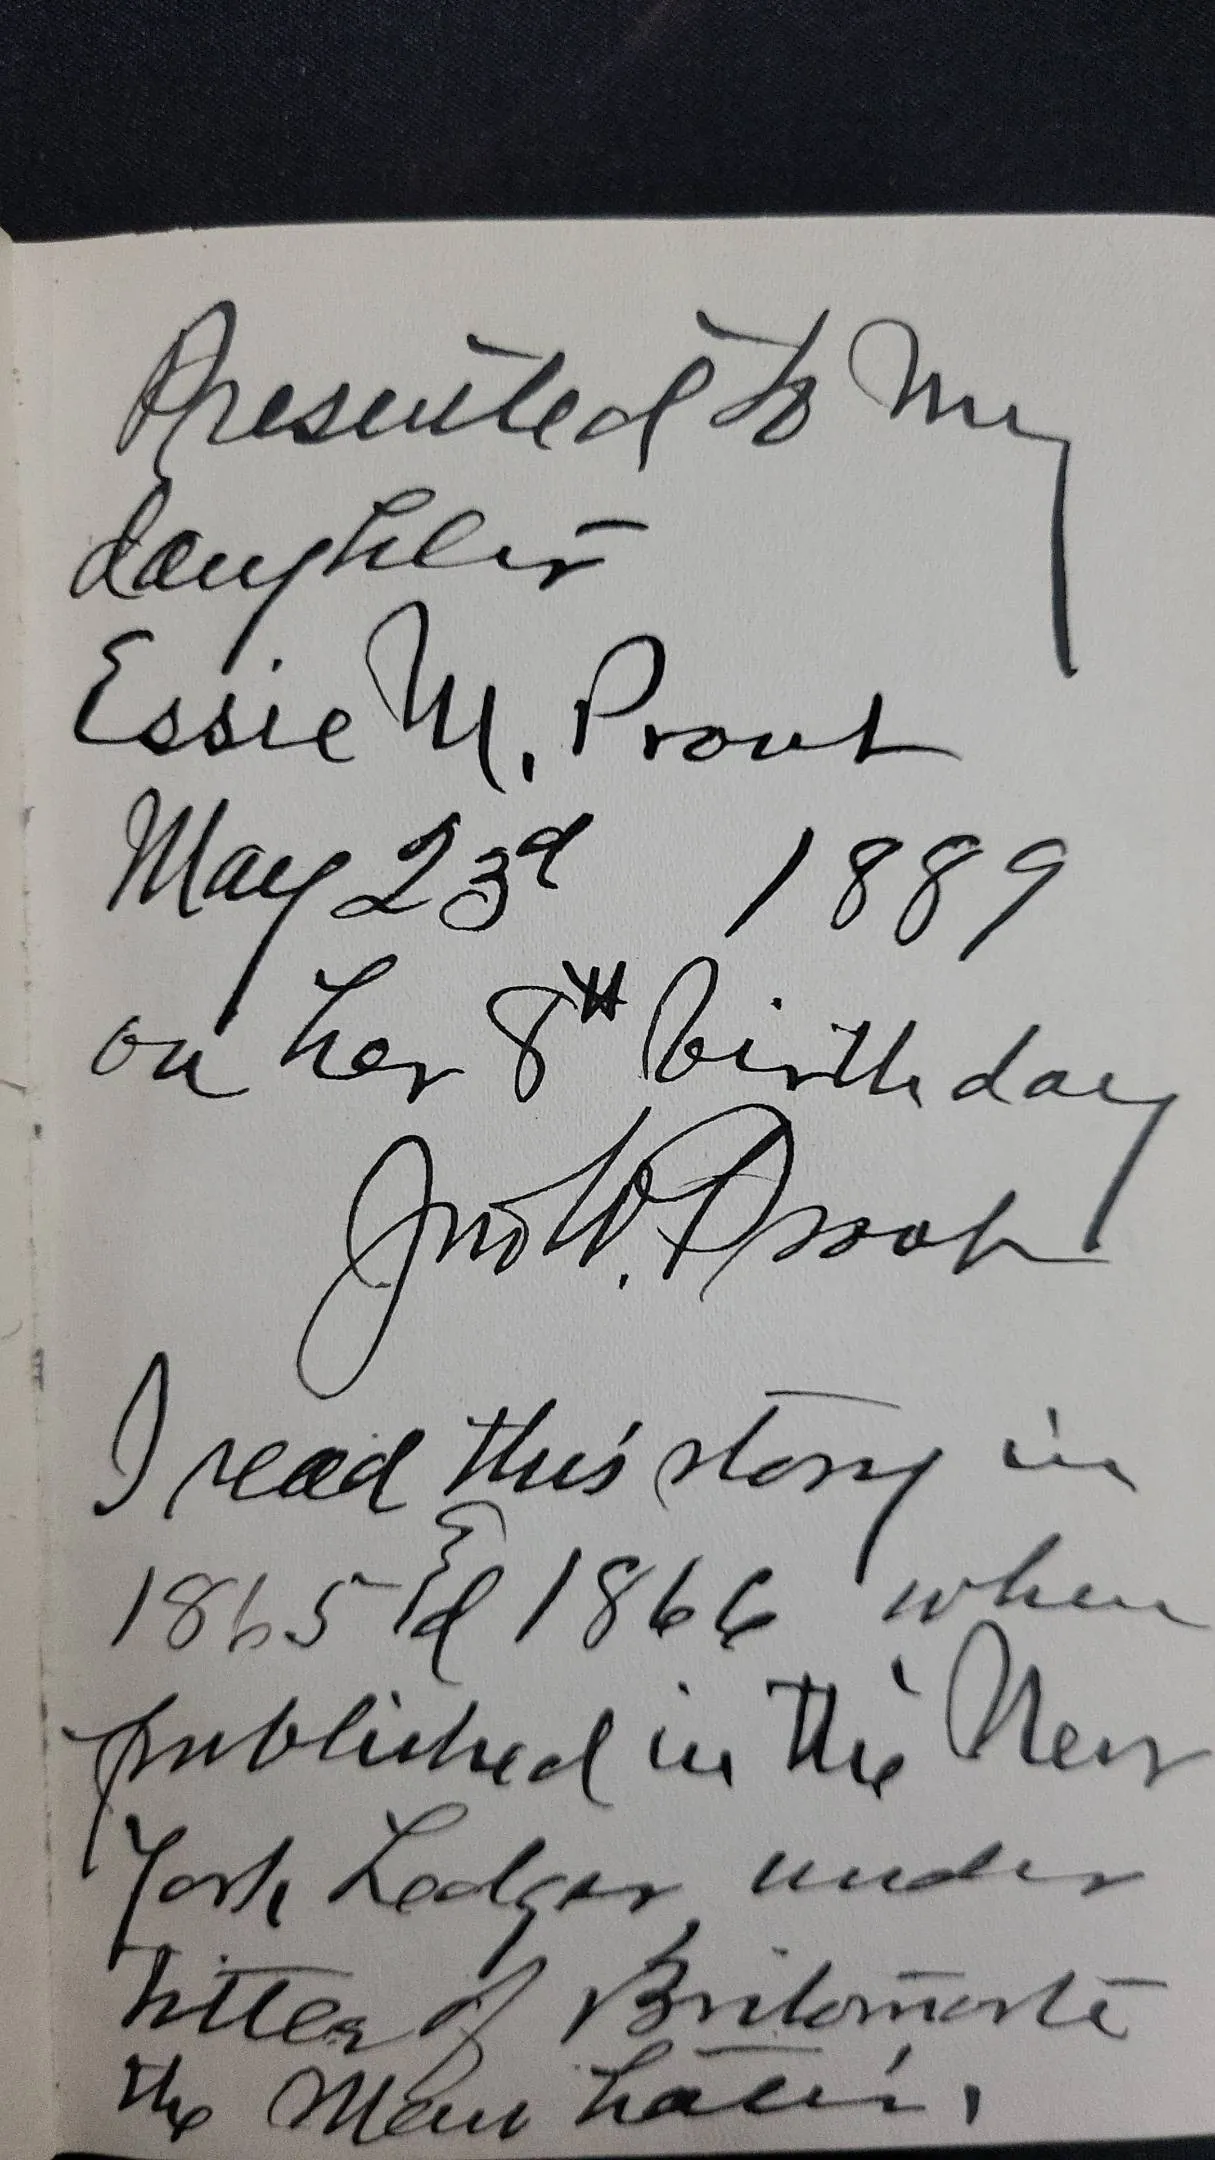 Presented to My
daughter
Essie M. Prout
May 23d 1889
on her 8th birthday
Jno W. Prout
I read this story in
1865 & 1866 when
published in the New
York Ledger under
title of Britomarte
the Man hater.